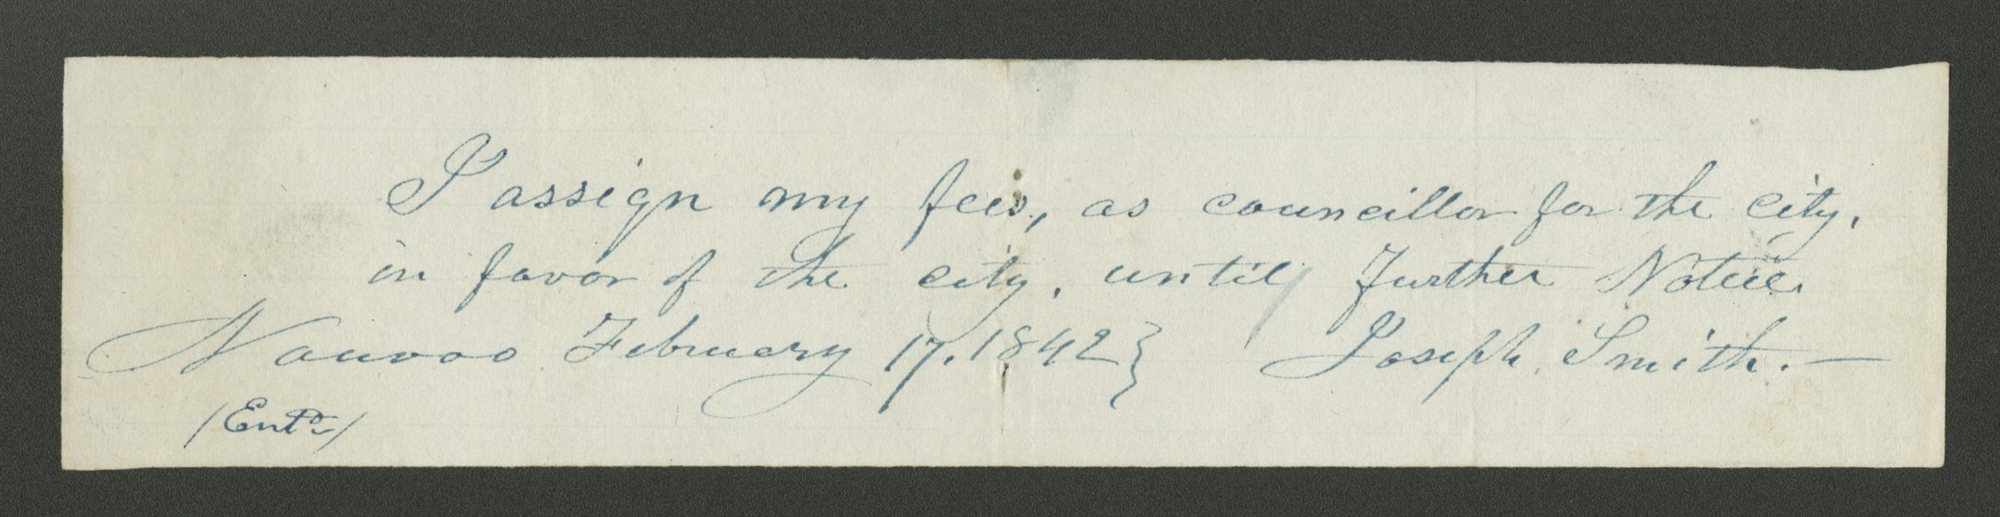 I assign my fees, as councillor for the city,
in favor of the city, until further Notice.
Nauvoo February 17, 1842} Joseph Smith.—
/Entd/